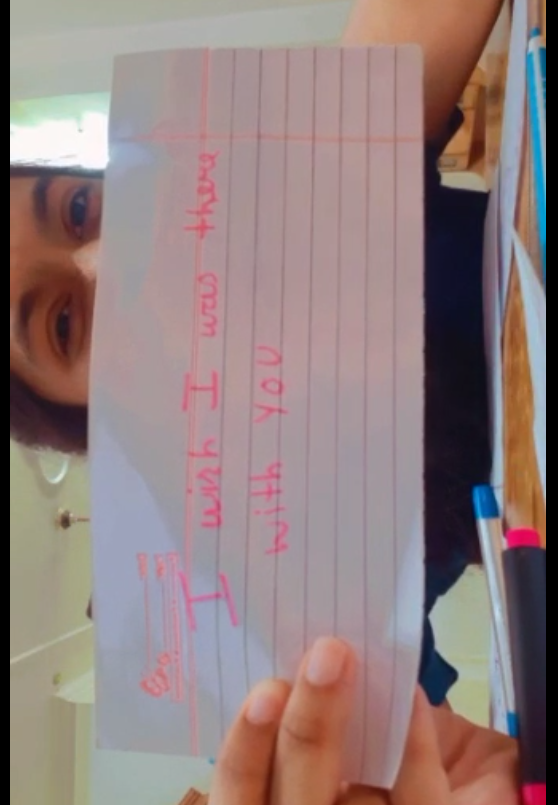 I wish I was there
with you